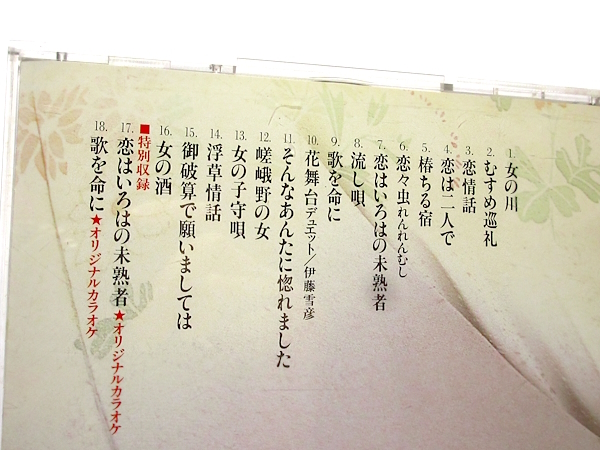 1. 女の川
2. むすめ巡礼
3. 恋情話
4. 恋は二人で
5. 椿ちる宿
6. 恋々虫れんれんむし
7. 恋はいろはの未熟者
8. 流し唄
9. 歌を命に
10. 花舞台デュエット/伊藤雪彦
11. そんなあんたに惚れました
12. 嵯峨野の女
13. 女の子守唄
14. 浮草情話
15. 御破算で願いましては
16. 女の酒
■特別収録
17. 恋はいろはの未熟者★オリジナルカラオケ
18. 歌を命に★オリジナルカラオケ